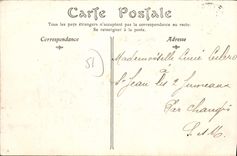 Carte Postale
Tous les pays étrangers n'acceptent pas la correspondance au recto.
Se renseigner à la poste.
Correspondance
Adresse
51
Mademoiselle Lucie
St Jean les 2 Jumeaux
Par Changis
S. et M.